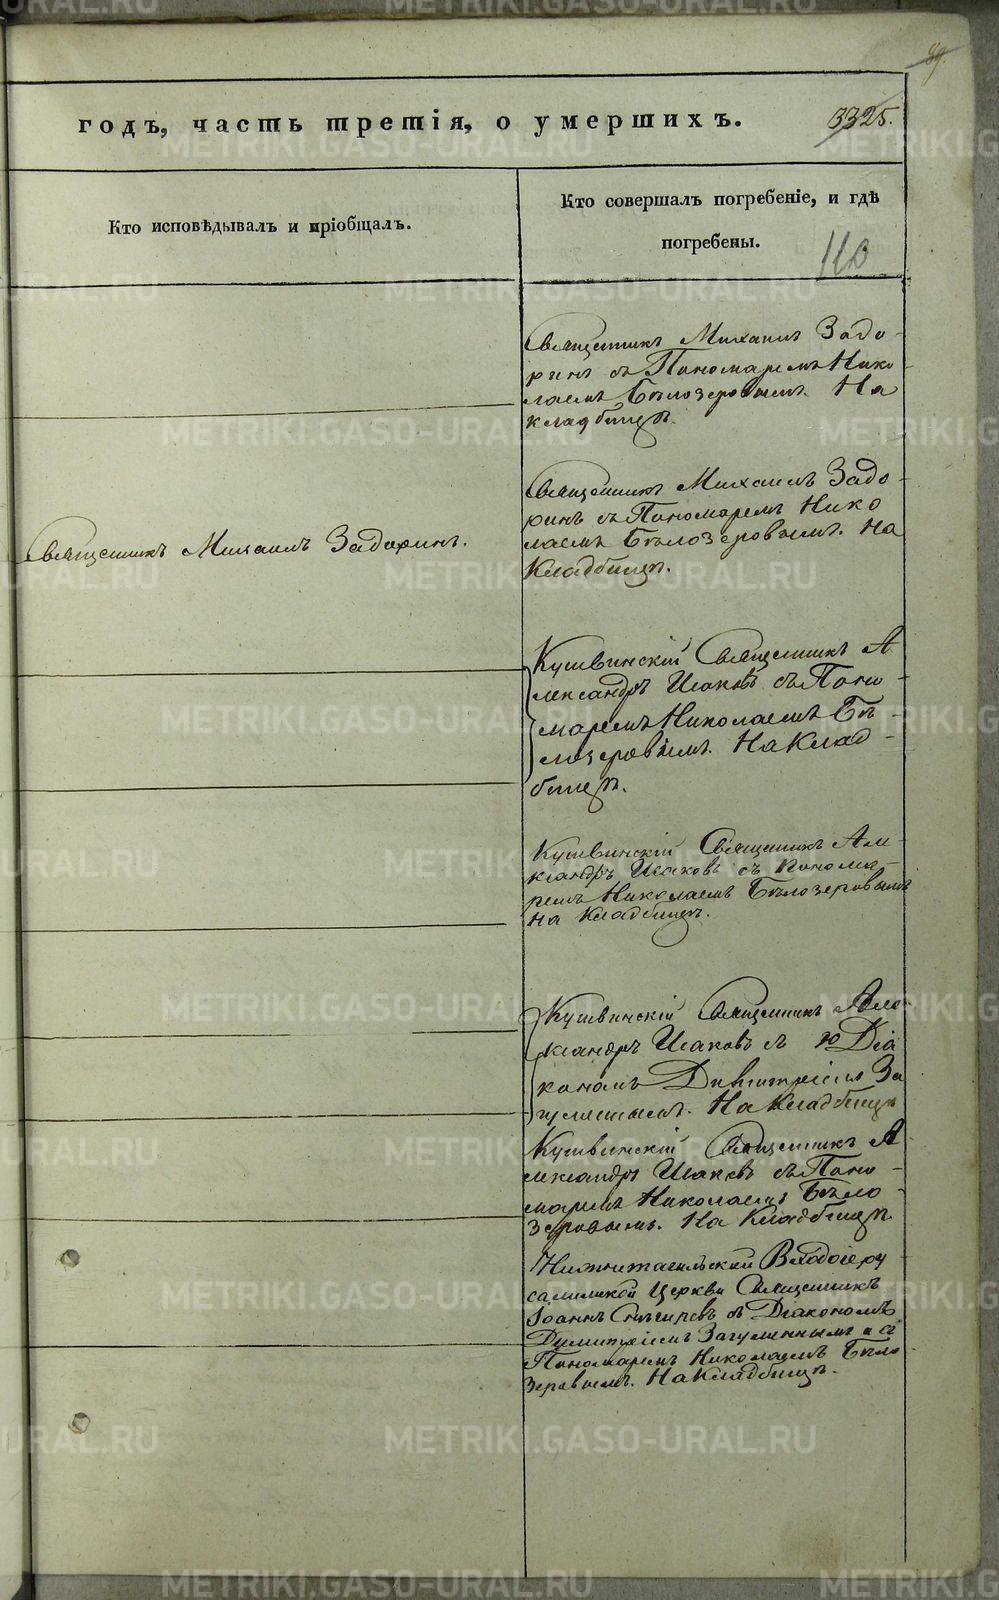 89.
годъ, часть третія, о умершихъ.
3325.
Кто исповѣдывалъ и пріобщалъ.
Кто совершалъ погребеніе, и гдѣ
погребены.
110
Священникъ Михаилъ Задо-
ринъ съ Пономаремъ Нико
лаемъ Бѣлозеровымъ. На
кладбищѣ.
Священникъ Михаилъ Задоринъ.
Священникъ Михаилъ Задо-
ринъ съ Пономаремъ Нико
лаемъ Бѣлозеровымъ. На
Кладбищѣ.
Кушвинскій Священникъ А
лександръ Исаковъ съ Поно-
маремъ Николаемъ Бѣ-
лозеровымъ. На Клад-
бищѣ.
Кушвинскій Священникъ Але-
ксандръ Исаковъ съ Понома-
ремъ Николаемъ Бѣлозеровымъ
на Кладбищѣ.
Кушвинскій Священникъ Але-
ксандръ Исаковъ съ Діа
кономъ Димитріем За
гуменнымъ. На Кладбищѣ
Кушвинскій Священникъ А
лександръ Исаковъ съ Поно-
маремъ Николаемъ Бѣло-
зеровымъ. На Кладбищѣ.
Нижнетагильский Входоіеру
салимской Церкви Священникъ
Іоаннъ Снѣгиревъ съ Діакономъ
Димитріемъ Загуменнымъ и съ
Пономаремъ Николаемъ Бѣло-
зеровымъ. На Кладбищѣ.
METRIKI.GASO-URAL.RU